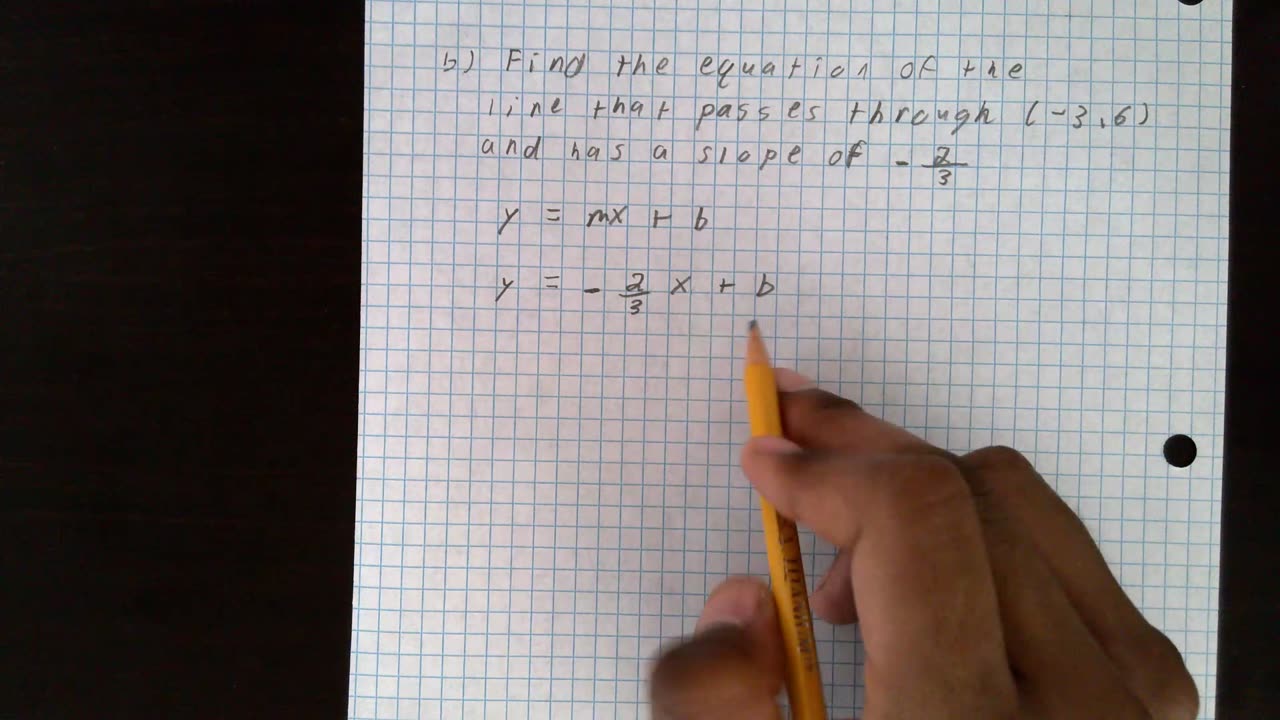 b) Find the equation of the
line that passes through (-3,6)
and has a slope of - 2/3
y = mx + b
y = - 2/3 x + b